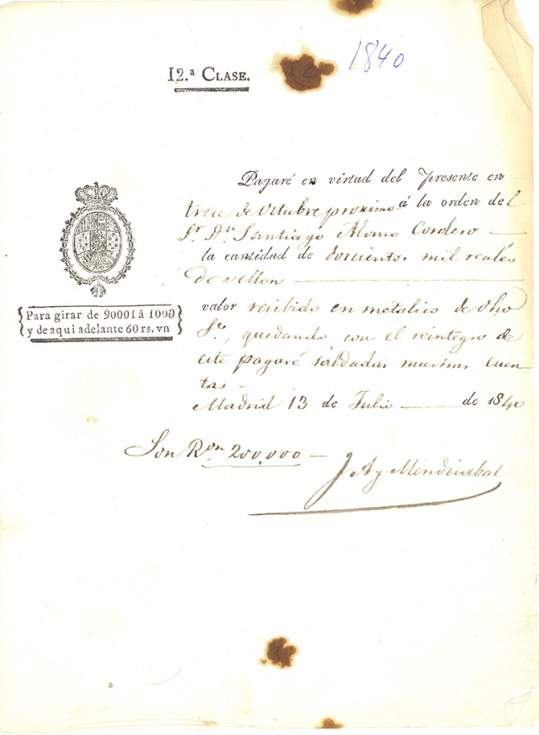 1840
12.ª CLASE.
Pagaré en virtud del Presente en
trece de Octubre proximo á la orden del
Sr. Dn. Santiago Alonso Cordero
la cantidad de doscientos mil reales
de vellon
Para girar de 90001 á 1000
y de aqui adelante 60 rs. vn
valor recibido en metalico de dho
Sr., quedando con el reintegro de
este pagaré saldadas nuestras cuen
tas
Madrid 13 de Julio de 1840
Son Rvon 200,000
J. A. y Mendizabal